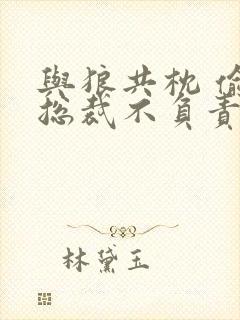 與狼共枕 偷
總裁不負責
林黛玉